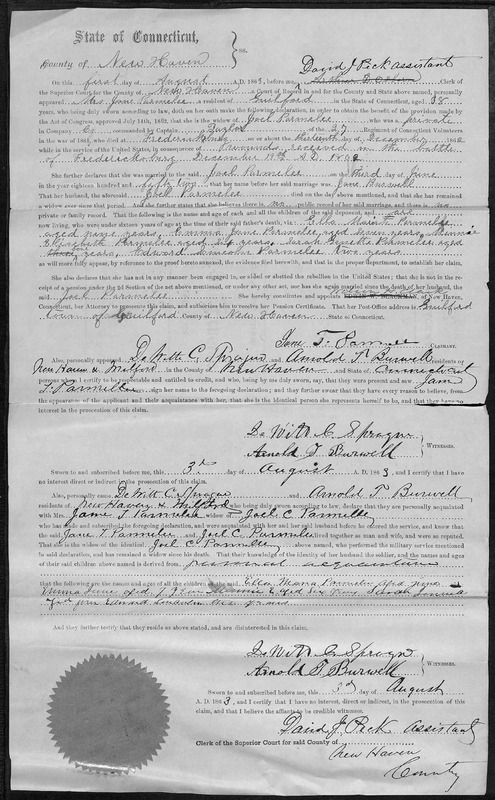 State of Connecticut,
County of New Haven } ss.
David J Peck assistant
On this first day of August A.D. 1863, before me, Clerk of
the Superior Court for the County of New Haven a Court of Record in and for the County and State above named, personally
appeared Mrs. Jane Parmelee a resident of Guilford in the State of Connecticut, aged 38
years, who being duly sworn according to law, doth on her oath make the following declaration, in order to obtain the benefit of the provision made by
the Act of Congress, approved July 14th, 1862, that she is the widow of Joel Parmelee who was a private
in Company commanded by Captain Taylor of the 27 Regiment of Connecticut Volunteers
in the War of 1861, who died at Fredericksburg on or about the thirteenth day of December 1862
while in the service of the United States, in consequence of wounds received in the battle
of Fredericksburg December 13th A.D. 1862
She further declares that she was married to the said Joel Parmelee on the third day of June
in the year eighteen hundred and that her name before her said marriage was Jane Russell
That her husband, the aforesaid Joel Parmelee died on the day above mentioned, and that she has remained
a widow ever since that period. And she further states that she believes there is no public record of her said marriage, and there is no
private or family record. That the following is the name and age of each and all the children of the said deponent, and said
now living, who were under sixteen years of age at the time of their said father's death, viz: Ella Maria Parmelee
aged years, Emma Jane Parmelee, aged seven years, Minnie
Elizabeth Parmelee aged six years, Sarah Parmelee aged
years, Edward Parmelee two years
as will more fully appear, by reference to the proof hereto annexed, the evidence herewith, and that in the proper department, to establish her claim.
She also declares that she has not in any manner been engaged in, or aided or abetted the rebellion in the United States; that she is not in the re-
ceipt of a pension under the 2d Section of the act above mentioned, or under any other act, nor has she again married since the death of her husband, the
said Joel Parmelee She hereby constitutes and appoints of New Haven,
Connecticut, her Attorney to prosecute this claim, and authorizes him to receive her Pension Certificate. That her Post-office address is Guilford
Town of Guilford County of New Haven State of Connecticut.
Jane T. Parmelee CLAIMANT.
Also, personally appeared, De Witt C. Sprague and Arnold T. Burwell residents of
New Haven & Milford in the County of New Haven and State of Connecticut
persons whom I certify to be respectable and entitled to credit, and who, being by me duly sworn, say, that they were present and saw Jane
T Parmelee sign her name to the foregoing declaration; and they further swear that they have every reason to believe, from
the appearance of the applicant and their acquaintance with her, that she is the identical person she represents herself to be, and that they have no
interest in the prosecution of this claim.
De Witt C. Sprague
Arnold T. Burwell } WITNESSES.
Sworn to and subscribed before me, this 3d day of August A.D. 1863, and I certify that I have no
interest direct or indirect in the prosecution of this claim.
Also, personally came De Witt C. Sprague and Arnold T Burwell
residents of New Haven & Milford who being duly sworn according to law, say that they are personally acquainted
with Mrs. Jane T. Parmelee widow of Joel C. Parmelee
who has made and subscribed the foregoing declaration, and were acquainted with her and her said husband before he entered the service, and know that
the said Jane T. Parmelee and Joel C. Parmelee lived together as man and wife, and were so reputed.
That she is the widow of the identical Joel C. Parmelee above named, who performed the military service mentioned
in said declaration, and has remained a widow since his death. That their knowledge of the identity of her husband the soldier, and the names and ages
of their said children above named is derived from personal acquaintance
that the following are the names and ages of all the children of the said Ella Maria Parmelee aged
Emma Jane aged 7 Minnie E. aged six Sarah
Edward
And they further testify that they reside as above stated, and are disinterested in this claim.
De Witt C. Sprague
Arnold T. Burwell } WITNESSES.
Sworn to and subscribed before me, this 3d day of August
A.D. 1863, and I certify that I have no interest, direct or indirect, in the prosecution of this
claim, and that I believe the affiants to be credible witnesses.
David J. Peck Assistant
Clerk of the Superior Court for said County of
New Haven
County